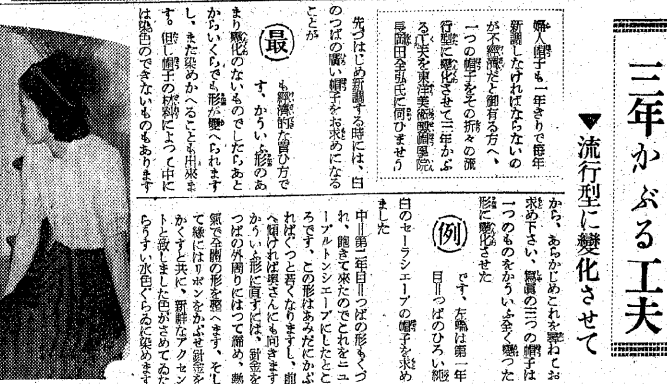 三年かぶる工夫
▼流行型に變化させて
婦人帽子も一年きりで毎年
新調しなければならないの
が不經濟だと御有る方へ、
一つの帽子をその折々の流
行型に變化させて三年かぶ
る工夫を東洋美術
岡田全弘氏に伺ひませう
先づはじめ新調する時には、白
のつばの廣い帽子をお求めになる
ことが
最
も經濟的な買ひ方で
す、かういふ形のあ
まり變化のないものでしたらあと
からいくらでも形が變へられます
し、また染めかへることも出來ま
す。但し帽子の材料によつて中に
は染色のできないものもあります
から、あらかじめこれを尋ねてお
求め下さい、寫眞の三つの帽子は
一つのものをかういふ全く變つた
形に變化させた
例
です、左端は第一年
目＝つばのひろい純
白のセーラシエープの帽子を求め
ました
中＝第二年目＝つばの形もくづ
れ、飽きて來たのでこれをニュ
ーブルトンシエープにしたとこ
ろです、この形はあみだにかぶ
ればぐつと若くなりますし、前
へ傾ければ奥さんにも向きます
かういふ形に直すには、針金を
つばの外周りにはつて縮め、蒸
氣で全體の形を整へます、そし
て縁にはリボンをかぶせ針金を
かくすと共に、新鮮なアクセン
トと致しました色がさめてゐた
らうすい水色ぐらゐに染めます